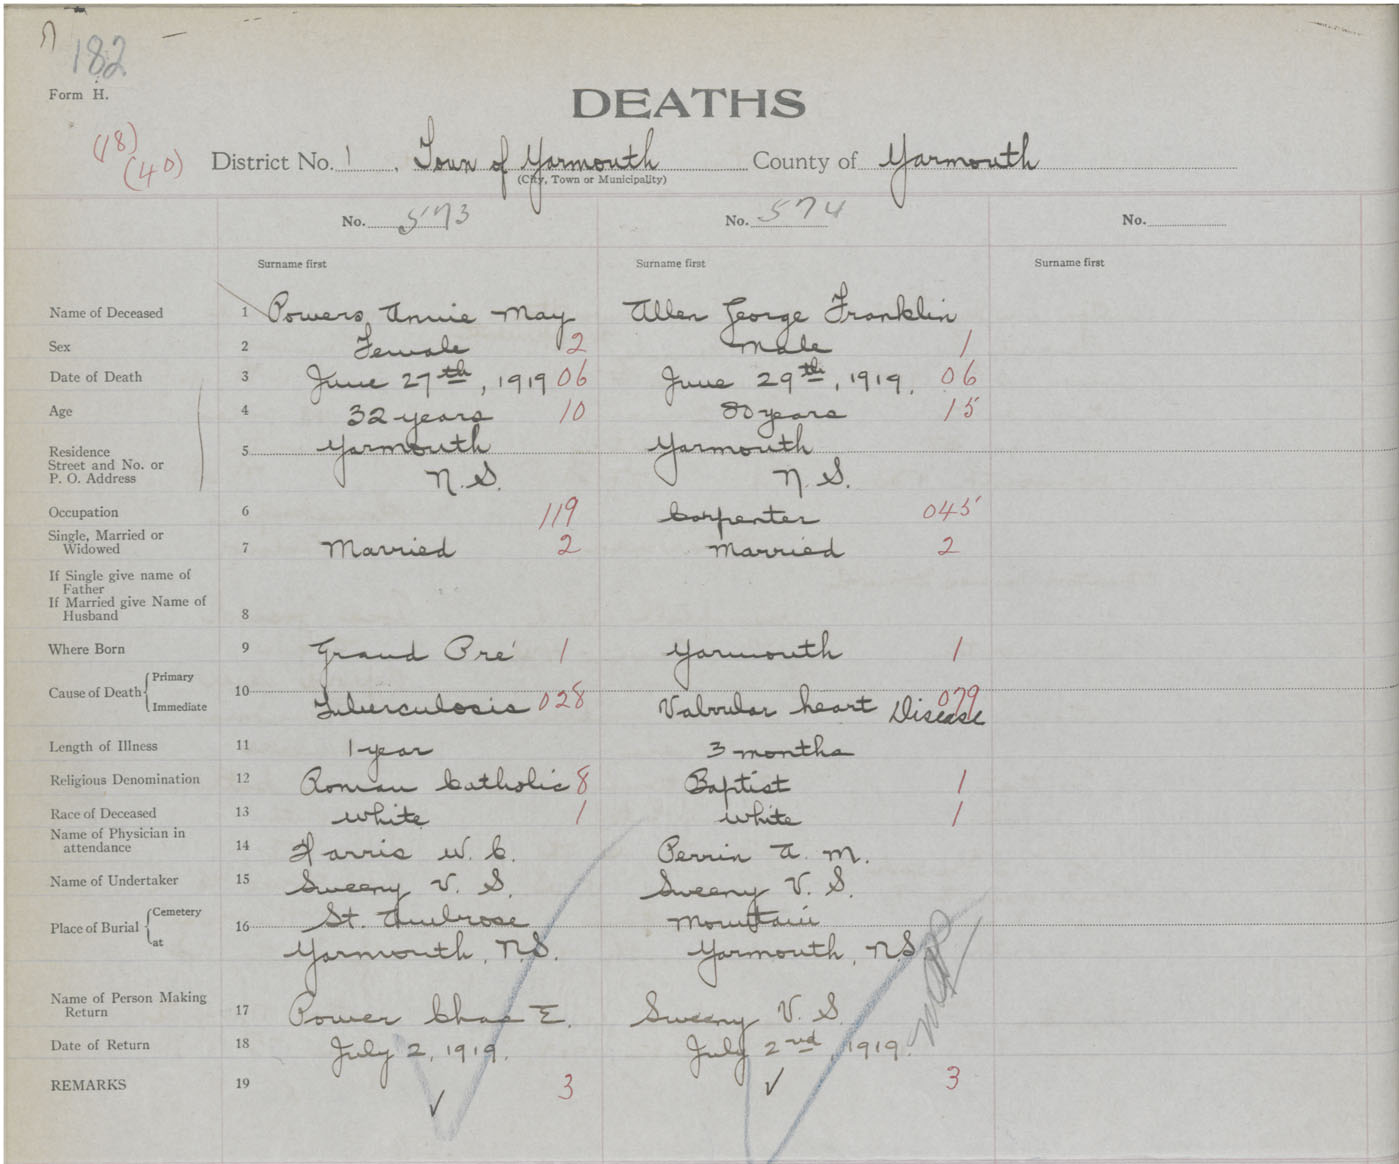 182
Form H.
DEATHS
(18)
(40)
District No. 1, Town of Yarmouth County of Yarmouth
(City, Town or Municipality)
No. 573 No. 574 No.
Surname first Surname first Surname first
Name of Deceased 1 Powers, Annie May Allen George Franklin
Sex 2 Female 2 Male 1
Date of Death 3 June 27th, 1919 06 June 29th, 1919. 06
Age 4 32 years 10 80 years 15
Residence 5 Yarmouth Yarmouth
Street and No. or
P. O. Address N.S. N.S.
Occupation 6 119 Carpenter 045
Single, Married or
Widowed 7 Married 2 Married 2
If Single give name of
Father
If Married give Name of
Husband 8
Where Born 9 Grand Pré 1 Yarmouth 1
Cause of Death Primary 10
Immediate Tuberculosis 028 Valvular heart Disease 079
Length of Illness 11 1 year 3 months
Religious Denomination 12 Roman Catholic 8 Baptist 1
Race of Deceased 13 white 1 white 1
Name of Physician in
attendance 14 Harris W. C. Perrin A. M.
Name of Undertaker 15 Sweeny V. S. Sweeny V. S.
Place of Burial Cemetery 16 St. Ambrose Mountain
at Yarmouth, N.S. Yarmouth, N.S
Name of Person Making
Return 17 Power Chas E. Sweeny V. S.
Date of Return 18 July 2, 1919. July 2nd, 1919.
REMARKS 19 3 3